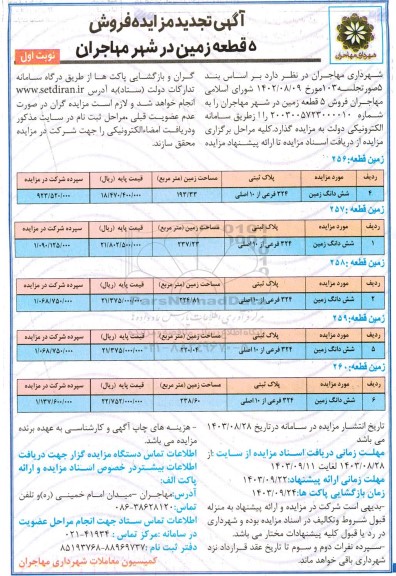 آگهی تجدید مزایده فروش
۵ قطعه زمین در شهر مهاجران
نوبت اول
شهرداری مهاجران
شهرداری مهاجران در نظر دارد بر اساس بند
۵صورتجلسه۱۰۳مورخ ۱۴۰۲/۰۸/۰۹ شورای اسلامی
مهاجران فروش ۵ قطعه زمین در شهر مهاجران را به
شماره ۲۰۰۳۰۰۵۷۲۳۰۰۰۰۱۰ را ازطریق سامانه
الکترونیکی دولت به مزایده گذارد.کلیه مراحل برگزاری
مزایده از دریافت اسناد مزایده تا ارائه پیشنهاد مزایده
گران و بازگشایی پاکت ها از طریق درگاه سامانه
تدارکات دولت (ستاد)به آدرس www.setdiran.ir
انجام خواهد شد و لازم است مزایده گران در صورت
عدم عضویت قبلی ،مراحل ثبت نام در سایت مذکور
ودریافت امضاءالکترونیکی را جهت شرکت در مزایده
محقق سازند.
زمین قطعه:۲۵۶
ردیف مورد مزایده پلاک ثبتی مساحت زمین (متر مربع) قیمت پایه (ریال) سپرده شرکت در مزایده
۴ شش دانگ زمین ۳۲۴ فرعی از ۱۰ اصلی ۱۹۳/۳۳ ۱۸/۴۷۰/۴۰۰/۰۰۰ ۹۲۳/۵۲۰/۰۰۰
زمین قطعه:۲۵۷
ردیف مورد مزایده پلاک ثبتی مساحت زمین (متر مربع) قیمت پایه (ریال) سپرده شرکت در مزایده
۱ شش دانگ زمین ۳۲۴ فرعی از ۱۰ اصلی ۲۳۷/۲۳ ۲۱/۸۰۲/۵۰۰/۰۰۰ ۱/۰۹۰/۱۲۵/۰۰۰
زمین قطعه:۲۵۸
ردیف مورد مزایده پلاک ثبتی مساحت زمین (متر مربع) قیمت پایه (ریال) سپرده شرکت در مزایده
۲ شش دانگ زمین ۳۲۴ فرعی از ۱۰ اصلی ۲۱/۳۷۵/۰۰۰/۰۰۰ ۱/۰۶۸/۷۵۰/۰۰۰
زمین قطعه:۲۵۹
ردیف مورد مزایده پلاک ثبتی مساحت زمین (متر مربع) قیمت پایه (ریال) سپرده شرکت در مزایده
۵ شش دانگ زمین ۳۲۴ فرعی از ۱۰ اصلی ۲۱/۳۷۵/۰۰۰/۰۰۰ ۱/۰۶۸/۷۵۰/۰۰۰
زمین قطعه:۲۶۰
ردیف مورد مزایده پلاک ثبتی مساحت زمین (متر مربع) قیمت پایه (ریال) سپرده شرکت در مزایده
۶ شش دانگ زمین ۳۲۴ فرعی از ۱۰ اصلی ۲۳۸/۶۰ ۲۲/۷۵۲/۰۰۰/۰۰۰ ۱/۱۳۷/۶۰۰/۰۰۰
تاریخ انتشار مزایده در سامانه درتاریخ ۱۴۰۳/۰۸/۲۸
می باشد
مهلت زمانی دریافت اسناد مزایده از سایت :از
۱۴۰۳/۰۸/۲۸ لغایت ۱۴۰۳/۰۹/۱۱
مهلت زمانی ارائه پیشنهاد:۱۴۰۳/۰۹/۲۲
زمان بازگشایی پاکت ها:۱۴۰۳/۰۹/۲۴
-بدیهی است شرکت در مزایده و ارائه پیشنهاد به منزله
قبول شروط وتکالیف در اسناد مزایده بوده و شهرداری
در رد یا قبول کلیه پیشنهادات مختار می باشد.
-سپرده نفرات دوم و سوم تا تاریخ عقد قرازداد نزد
شهرداری باقی خواهد ماند.
- هزینه های چاپ آگهی و کارشناسی به عهده برنده
مزایده می باشد.
اطلاعات تماس دستگاه مزایده گزار جهت دریافت
اطلاعات بیشتردر خصوص اسناد مزایده و ارائه
پاکت الف:
آدرس:مهاجران -میدان امام خمینی (ره)و تلفن
تماس:۳۸۶۲۸۱۲۰-۰۸۶
اطلاعات تماس ستاد جهت انجام مراحل عضویت
در سامانه :مرکز تماس : ۴۱۹۳۴-۰۲۱
دفتر ثبت نام :۸۸۹۶۹۷۳۷-۸۵۱۹۳۷۶۸
کمیسیون معاملات شهرداری مهاجران